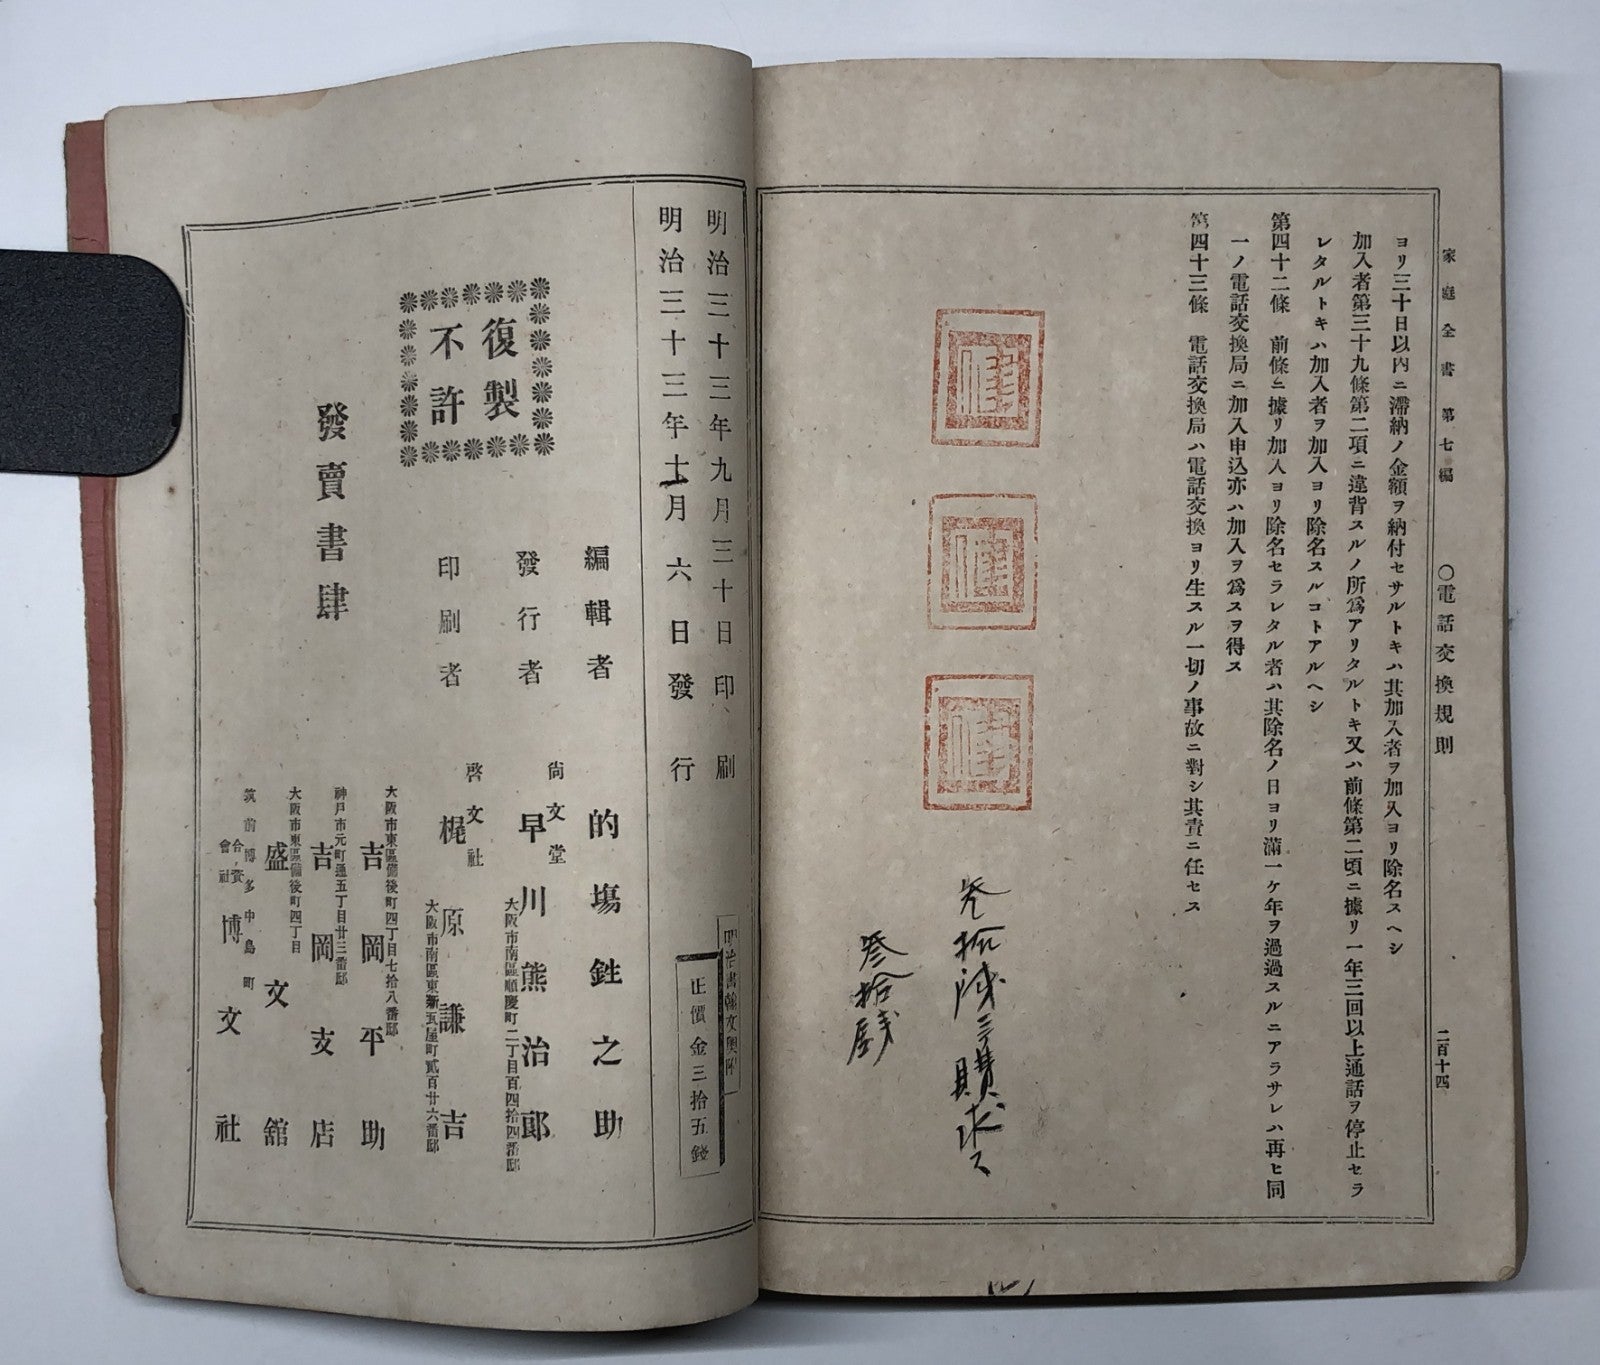 家庭全書 第七編 〇電話交換規則 二百十四
ヨリ三十日以內ニ滯納ノ金額ヲ納付セサルトキハ其加入者ヲ加入ヨリ除名スヘシ
加入者第三十九條第二項ニ違背スルノ所爲アリタルトキ又ハ前條第二項ニ據リ一年三回以上通話ヲ停止セラ
レタルトキハ加入者ヲ加入ヨリ除名スルコトアルヘシ
第四十二條 前條ニ據リ加入ヨリ除名セラレタル者ハ其除名ノ日ヨリ滿一ケ年ヲ過過スルニアラサレハ再ヒ同
一ノ電話交換局ニ加入申込亦ハ加入ヲ爲スヲ得ス
第四十三條 電話交換局ハ電話交換ヨリ生スル一切ノ事故ニ對シ其責ニ任セス
參拾
參拾錢
明治書翰文奧附
正價金三拾五錢
明治三十三年九月三十日印刷
明治三十三年十一月六日發行
編輯者 的塲鉎之助
發行者 尙文堂 早川熊治郎
大阪市南區順慶町二丁目百四拾四番邸
印刷者 啓文社 梶原謙吉
大阪市南區東新瓦屋町貳百廿六番邸
復製
不許
發賣書肆
大阪市東區備後町四丁目七拾八番邸
吉岡平助
神戸市元町通五丁目廿三番邸
吉岡支店
大阪市東區備後町四丁目
盛文舘
筑前博多中島町
合資會社 博文社